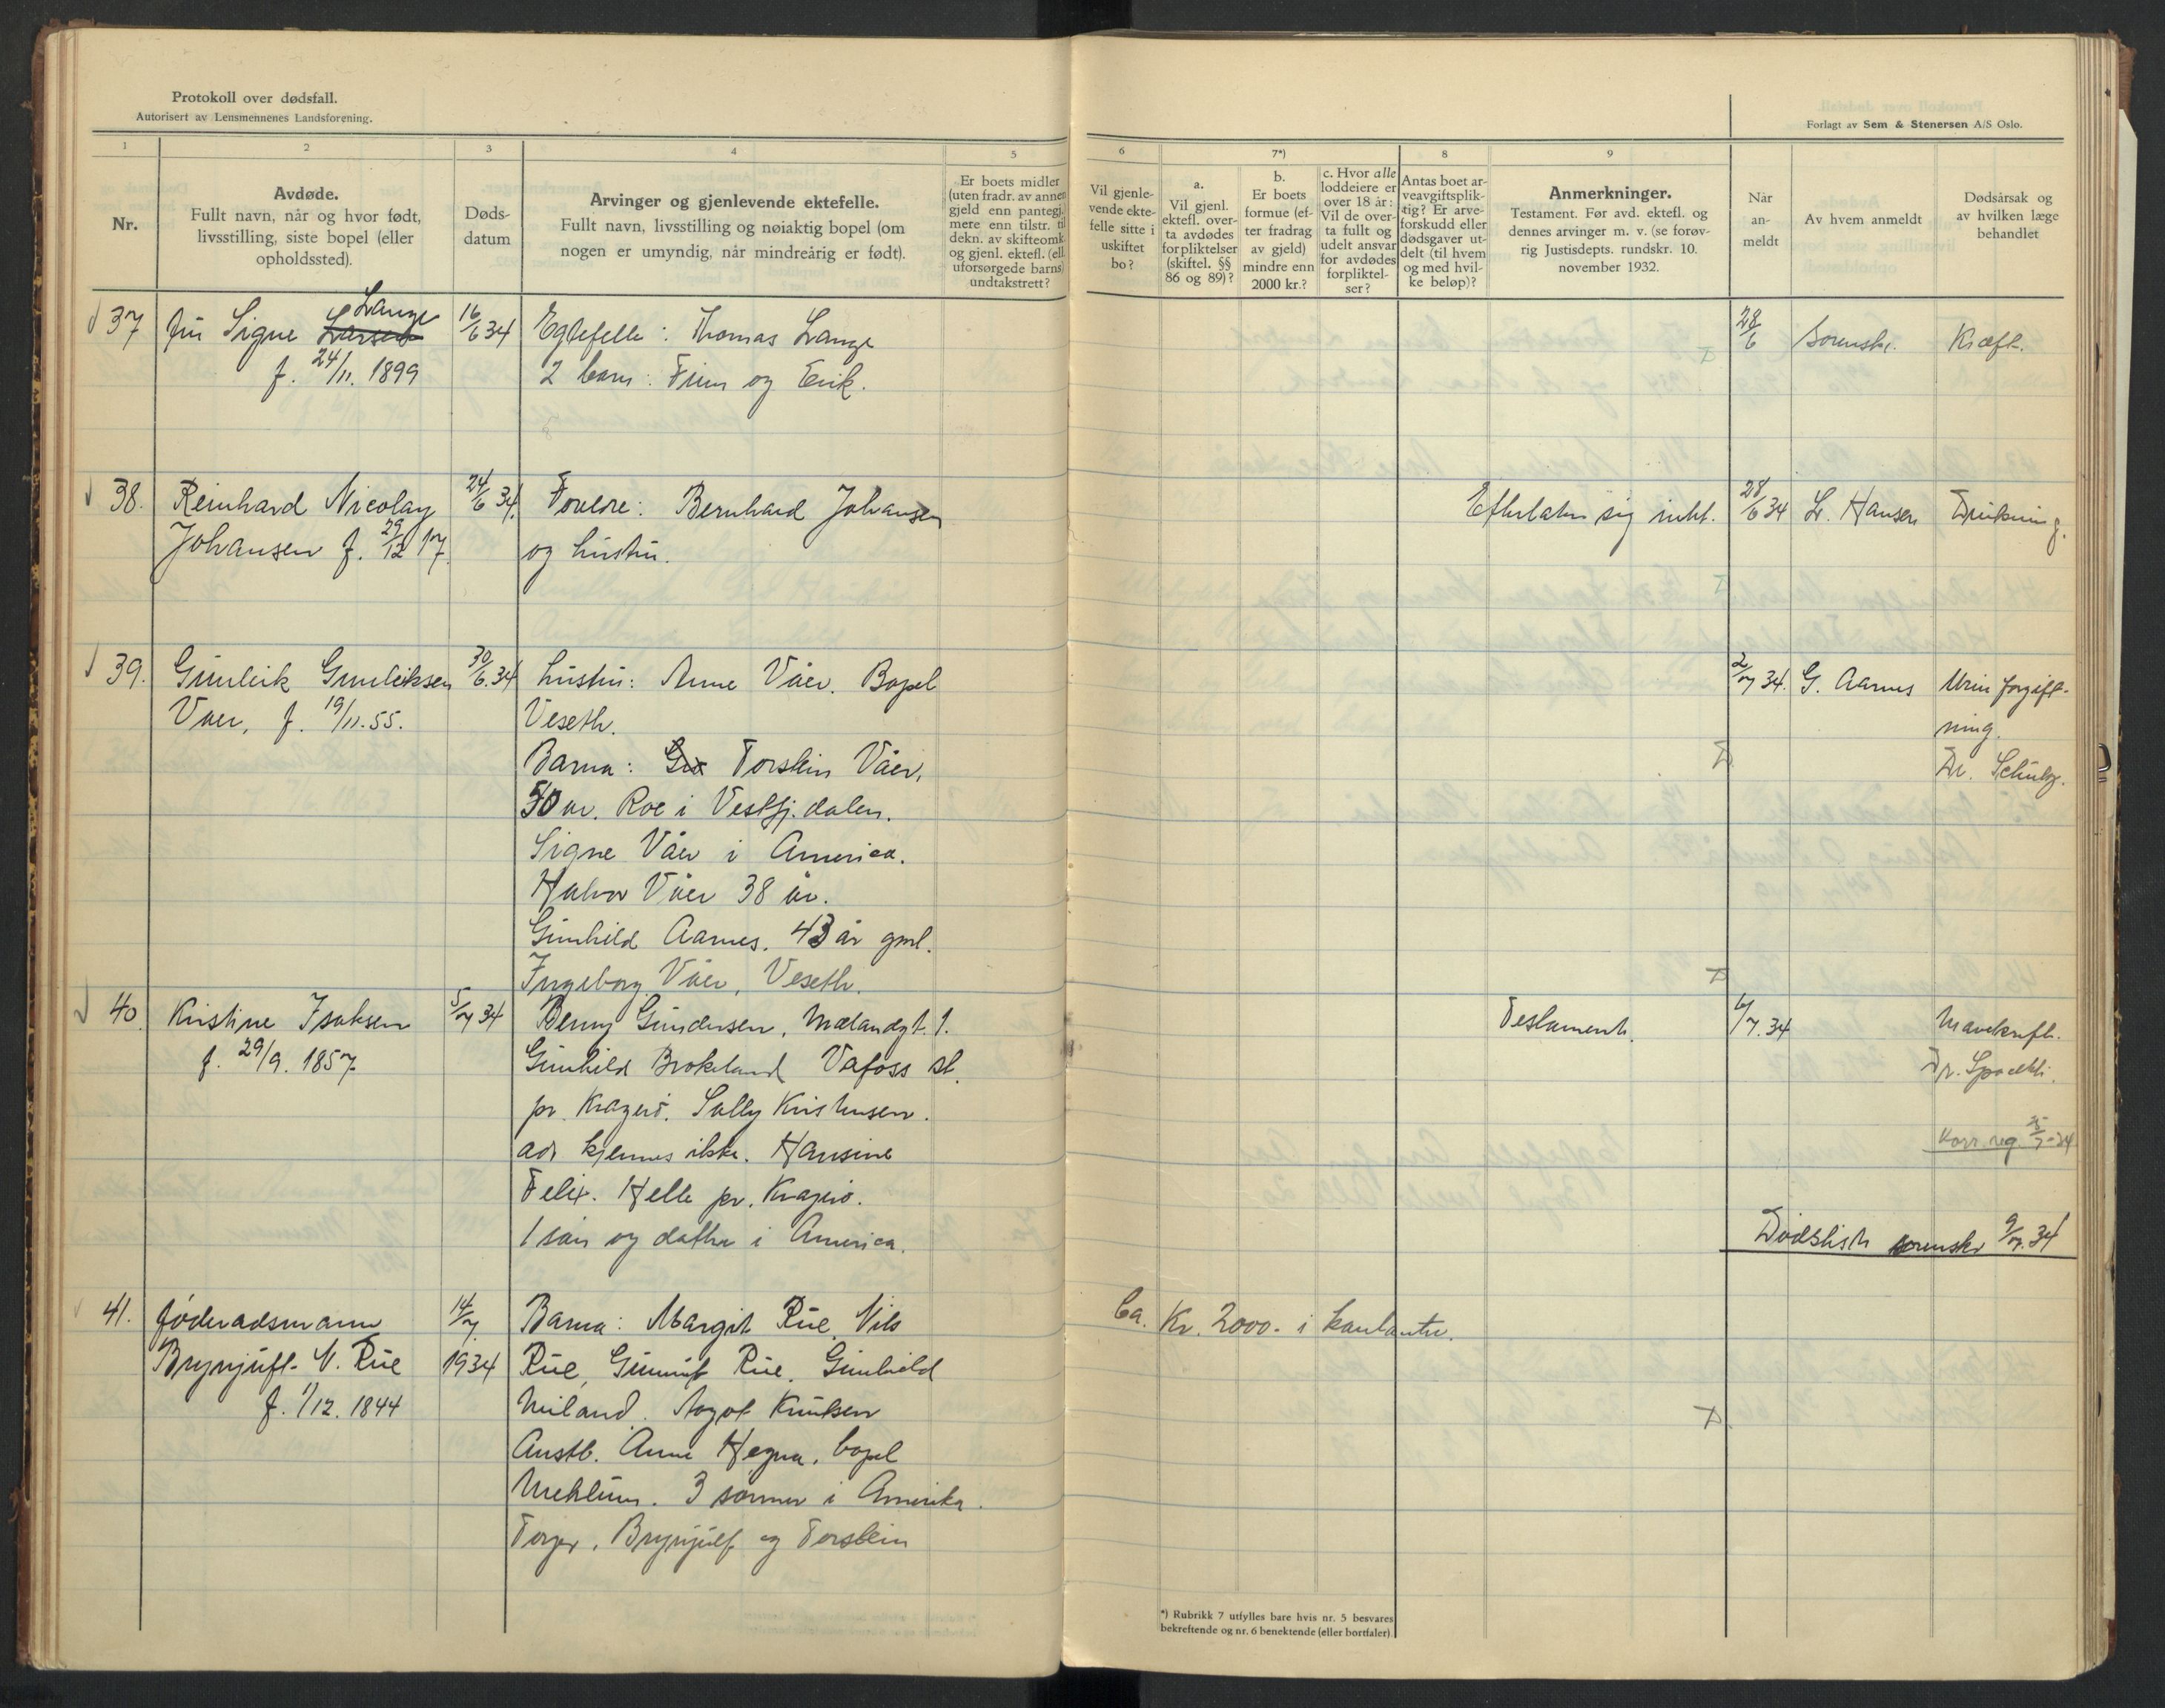 Protokoll over dødsfall.
Autorisert av Lensmennenes Landsforening.
Forlagt av Sem & Stenersen A/S Oslo.
1
2
3
4
5
6
7*)
8
9
Nr.
Avdøde.
Fullt navn, når og hvor født,
livsstilling, siste bopel (eller
opholdssted).
Døds-
datum
Arvinger og gjenlevende ektefelle.
Fullt navn, livsstilling og nøiaktig bopel (om
nogen er umyndig, når mindreårig er født).
Er boets midler
(uten fradr. av annen
gjeld enn pantegj.)
mere enn tilstr. til
dekn. av skifteomk.
og gjenl. ektef. (ell.
uforsørgede barns)
undtakstrett?
Vil gjenle-
vende ekte-
felle sitte i
uskiftet
bo?
a.
Vil gjenl.
ektefl. over-
ta avdødes
forpliktelser
(skiftel. §§
86 og 89)?
b.
Er boets
formue (ef-
ter fradrag
av gjeld)
mindre enn
2000 kr.?
c. Hvor alle
loddeiere er
over 18 år:
Vil de over-
ta fullt og
udelt ansvar
for avdødes
forpliktel-
ser?
Antas boet ar-
veavgiftsplik-
tig? Er arve-
forskudd eller
dødsgaver ut-
delt (til hvem
og med hvil-
ke beløp)?
Anmerkninger.
Testament. Før avd. ektefl. og
dennes arvinger m. v. (se forøv-
rig Justisdepts. rundskr. 10.
november 1932.
Når
an-
meldt
Av hvem anmeldt
Dødsårsak og
av hvilken læge
behandlet
37 fru Signe Larsen Lange 16/6 34 Egtefelle: Thomas Lange 28/6 Sorenskr. Kræft.
f. 24/11. 1899 2 barn: Finn og Erik.
38. Reinhard Nicolay 24/6 34. Foreldre: Bernhard Johansen Efterlater sig intet. 28/6 34 L. Hansen Drukning.
Johansen f. 29/12 17. og hustru.
39. Gunleik Gunleiksen 30/6. 34 hustru: Anne Våer. Bopel 2/7 34. G. Aarnes Urin forgift-
Vaer, f. 19/11. 55. Veseth. ning.
Barna: Torstein Våer, Dr. Schulz.
50 år. Roe i Vestfj. dalen.
Signe Våer i America.
Halvor Våer 38 år.
Gunhild Aarnes. 43 år gml.
Ingeborg Våer, Veseth.
40. Kristine Isaksen 5/7 34 Benny Gundersen, Mælandgt. 1. Testament. 6/7. 34 Mavekræft.
f. 29/9. 1857 Gunhild Brokeland Vafoss st. Dr.
pr. Kragerø. Sally Kristensen.
adr kjennes ikke. Hansine Korr. reg. 5/7-34
Felix. Helle pr. Kragerø.
1 søn og datter i America. Dødsliste sorenskr 9/7. 34
41. føderadsmann 14/7 Barna: Margit Rue, Nils Ca. Kr. 2000.- i kontanter.
Brynjulf N. Rue 1934 Rue, Gunnulf Rue, Gunhild
f. 1/12. 1844 Miland. Aagot Knutsen
Austb. Anne Hegna, bopel
Mehlum. 3 sønner i Amerika.
Torger, Brynjulf og Torstein
*) Rubrikk 7 utfylles bare hvis nr. 5 besvares
bekreftende og nr. 6 benektende (eller bortfaler).